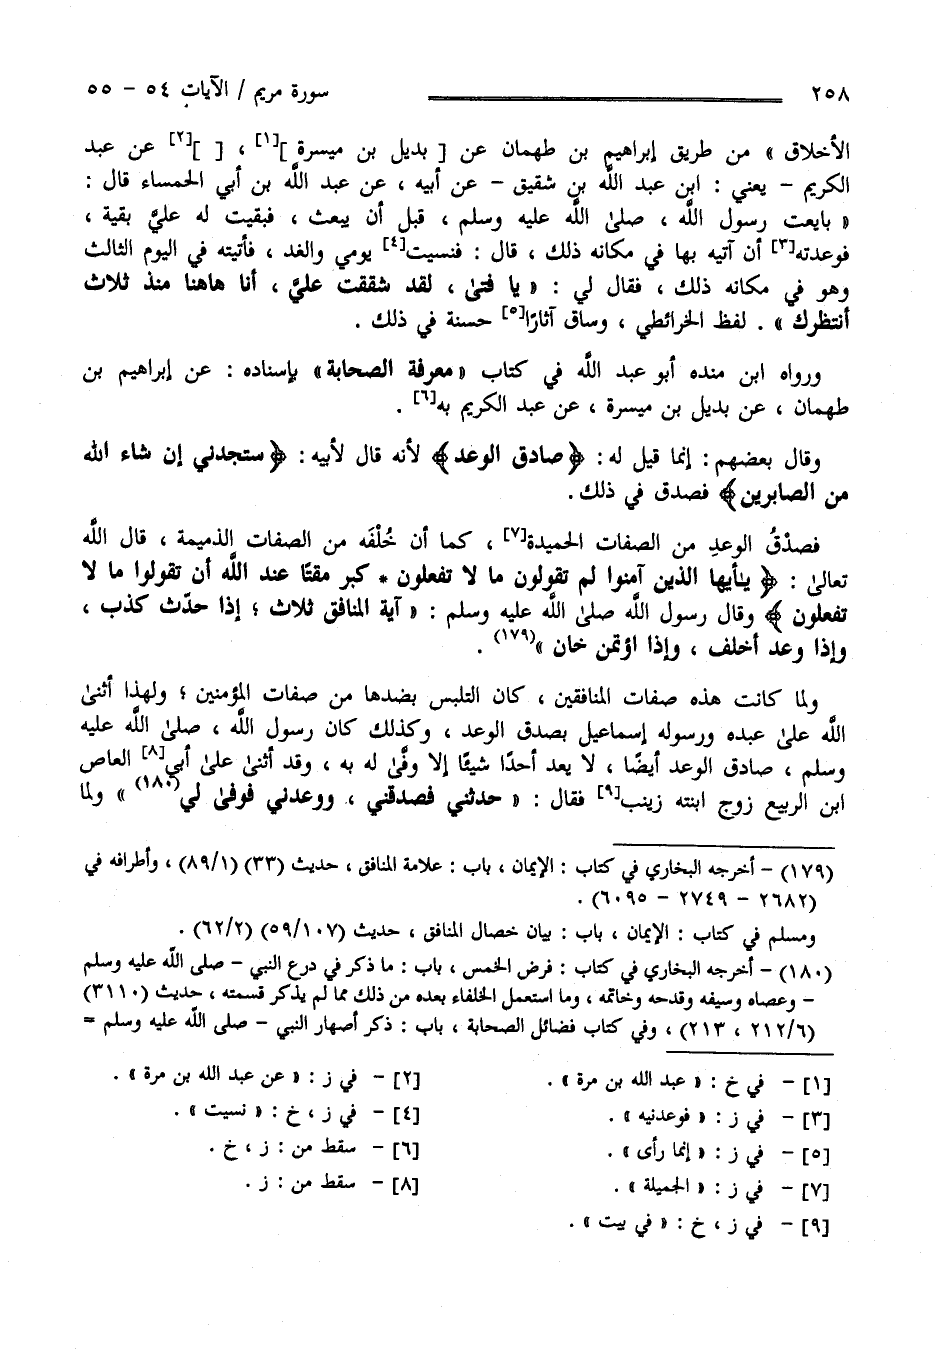 ٢٥٨ سورة مريم / الآيات ٥٤ - ٥٥
الأخلاق » من طريق إبراهيم بن طهمان عن [ بديل بن ميسرة ][١] ، [ ][٢] عن عبد
الكريم - يعني : ابن عبد الله بن شقيق - عن أبيه ، عن عبد الله بن أبي الحمساء قال :
« بايعت رسول الله ، صلى الله عليه وسلم ، قبل أن يبعث ، فبقيت له عليَّ بقية ،
فوعدته[٣] أن آتيه بها في مكانه ذلك ، قال : فنسيت[٤] يومي والغد ، فأتيته في اليوم الثالث
وهو في مكانه ذلك ، فقال لي : « يا فتى ، لقد شققت عليَّ ، أنا هاهنا منذ ثلاث
أنتظرك » . لفظ الخرائطي ، وساق آثارًا[٥] حسنة في ذلك .
ورواه ابن منده أبو عبد الله في كتاب « معرفة الصحابة » بإسناده : عن إبراهيم بن
طهمان ، عن بديل بن ميسرة ، عن عبد الكريم به[٦] .
وقال بعضهم : إنما قيل له : ﴿ صادق الوعد ﴾ لأنه قال لأبيه : ﴿ ستجدني إن شاء الله
من الصابرين ﴾ فصدق في ذلك .
فصدْقُ الوعدِ من الصفات الحميدة[٧] ، كما أن خُلْفَه من الصفات الذميمة ، قال الله
تعالى : ﴿ يأيها الذين آمنوا لم تقولون ما لا تفعلون * كبر مقتًا عند الله أن تقولوا ما لا
تفعلون ﴾ وقال رسول الله صلى الله عليه وسلم : « آية المنافق ثلاث ؛ إذا حدّث كذب ،
وإذا وعد أخلف ، وإذا اؤتمن خان »(١٧٩) .
ولما كانت هذه صفات المنافقين ، كان التلبس بضدها من صفات المؤمنين ؛ ولهذا أثنى
الله على عبده ورسوله إسماعيل بصدق الوعد ، وكذلك كان رسول الله ، صلى الله عليه
وسلم ، صادق الوعد أيضًا ، لا يعد أحدًا شيئًا إلا وفَّى له به ، وقد أثنى على أبي[٨] العاص
ابن الربيع زوج ابنته زينب[٩] فقال : « حدثني فصدقني ، ووعدني فوفى لي(١٨٠) » ولما
(١٧٩) - أخرجه البخاري في كتاب : الإيمان ، باب : علامة المنافق ، حديث (٣٣) (٨٩/١) ، وأطرافه في
(٢٦٨٢ - ٢٧٤٩ - ٦٠٩٥) .
ومسلم في كتاب : الإيمان ، باب : بيان خصال المنافق ، حديث (٥٩/١٠٧) (٦٢/٢) .
(١٨٠) - أخرجه البخاري في كتاب : فرض الخمس ، باب : ما ذكر في درع النبي - صلى الله عليه وسلم
- وعصاه وسيفه وقدحه وخاتمه ، وما استعمل الخلفاء بعده من ذلك مما لم يذكر قسمته ، حديث (٣١١٠)
(٢١٢/٦ ، ٢١٣) ، وفي كتاب فضائل الصحابة ، باب : ذكر أصهار النبي - صلى الله عليه وسلم =
[١] - في خ : « عبد الله بن مرة » . [٢] - في ز : « عن عبد الله بن مرة » .
[٣] - في ز : « فوعدنيه » . [٤] - في ز ، خ : « نسيت » .
[٥] - في ز : « إنما رأى » . [٦] - سقط من : ز ، خ .
[٧] - في ز : « الجميلة » . [٨] - سقط من : ز .
[٩] - في ز ، خ : « في بيت » .